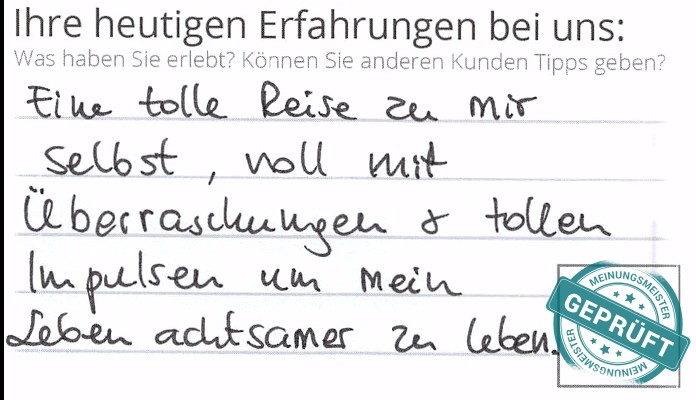 Ihre heutigen Erfahrungen bei uns:
Was haben Sie erlebt? Können Sie anderen Kunden Tipps geben?
Eine tolle Reise zu mir
selbst, voll mit
Überraschungen & tollen
Impulsen um mein
Leben achtsamer zu leben.
MEINUNGSMEISTER
GEPRÜFT
MEINUNGSMEISTER